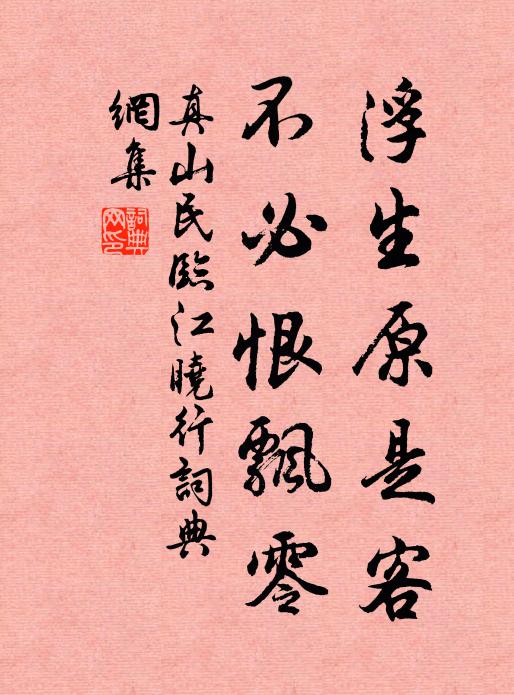 浮生原是客
不必恨飄零
真山民臨江曉行詞典
網集
詞典
网印